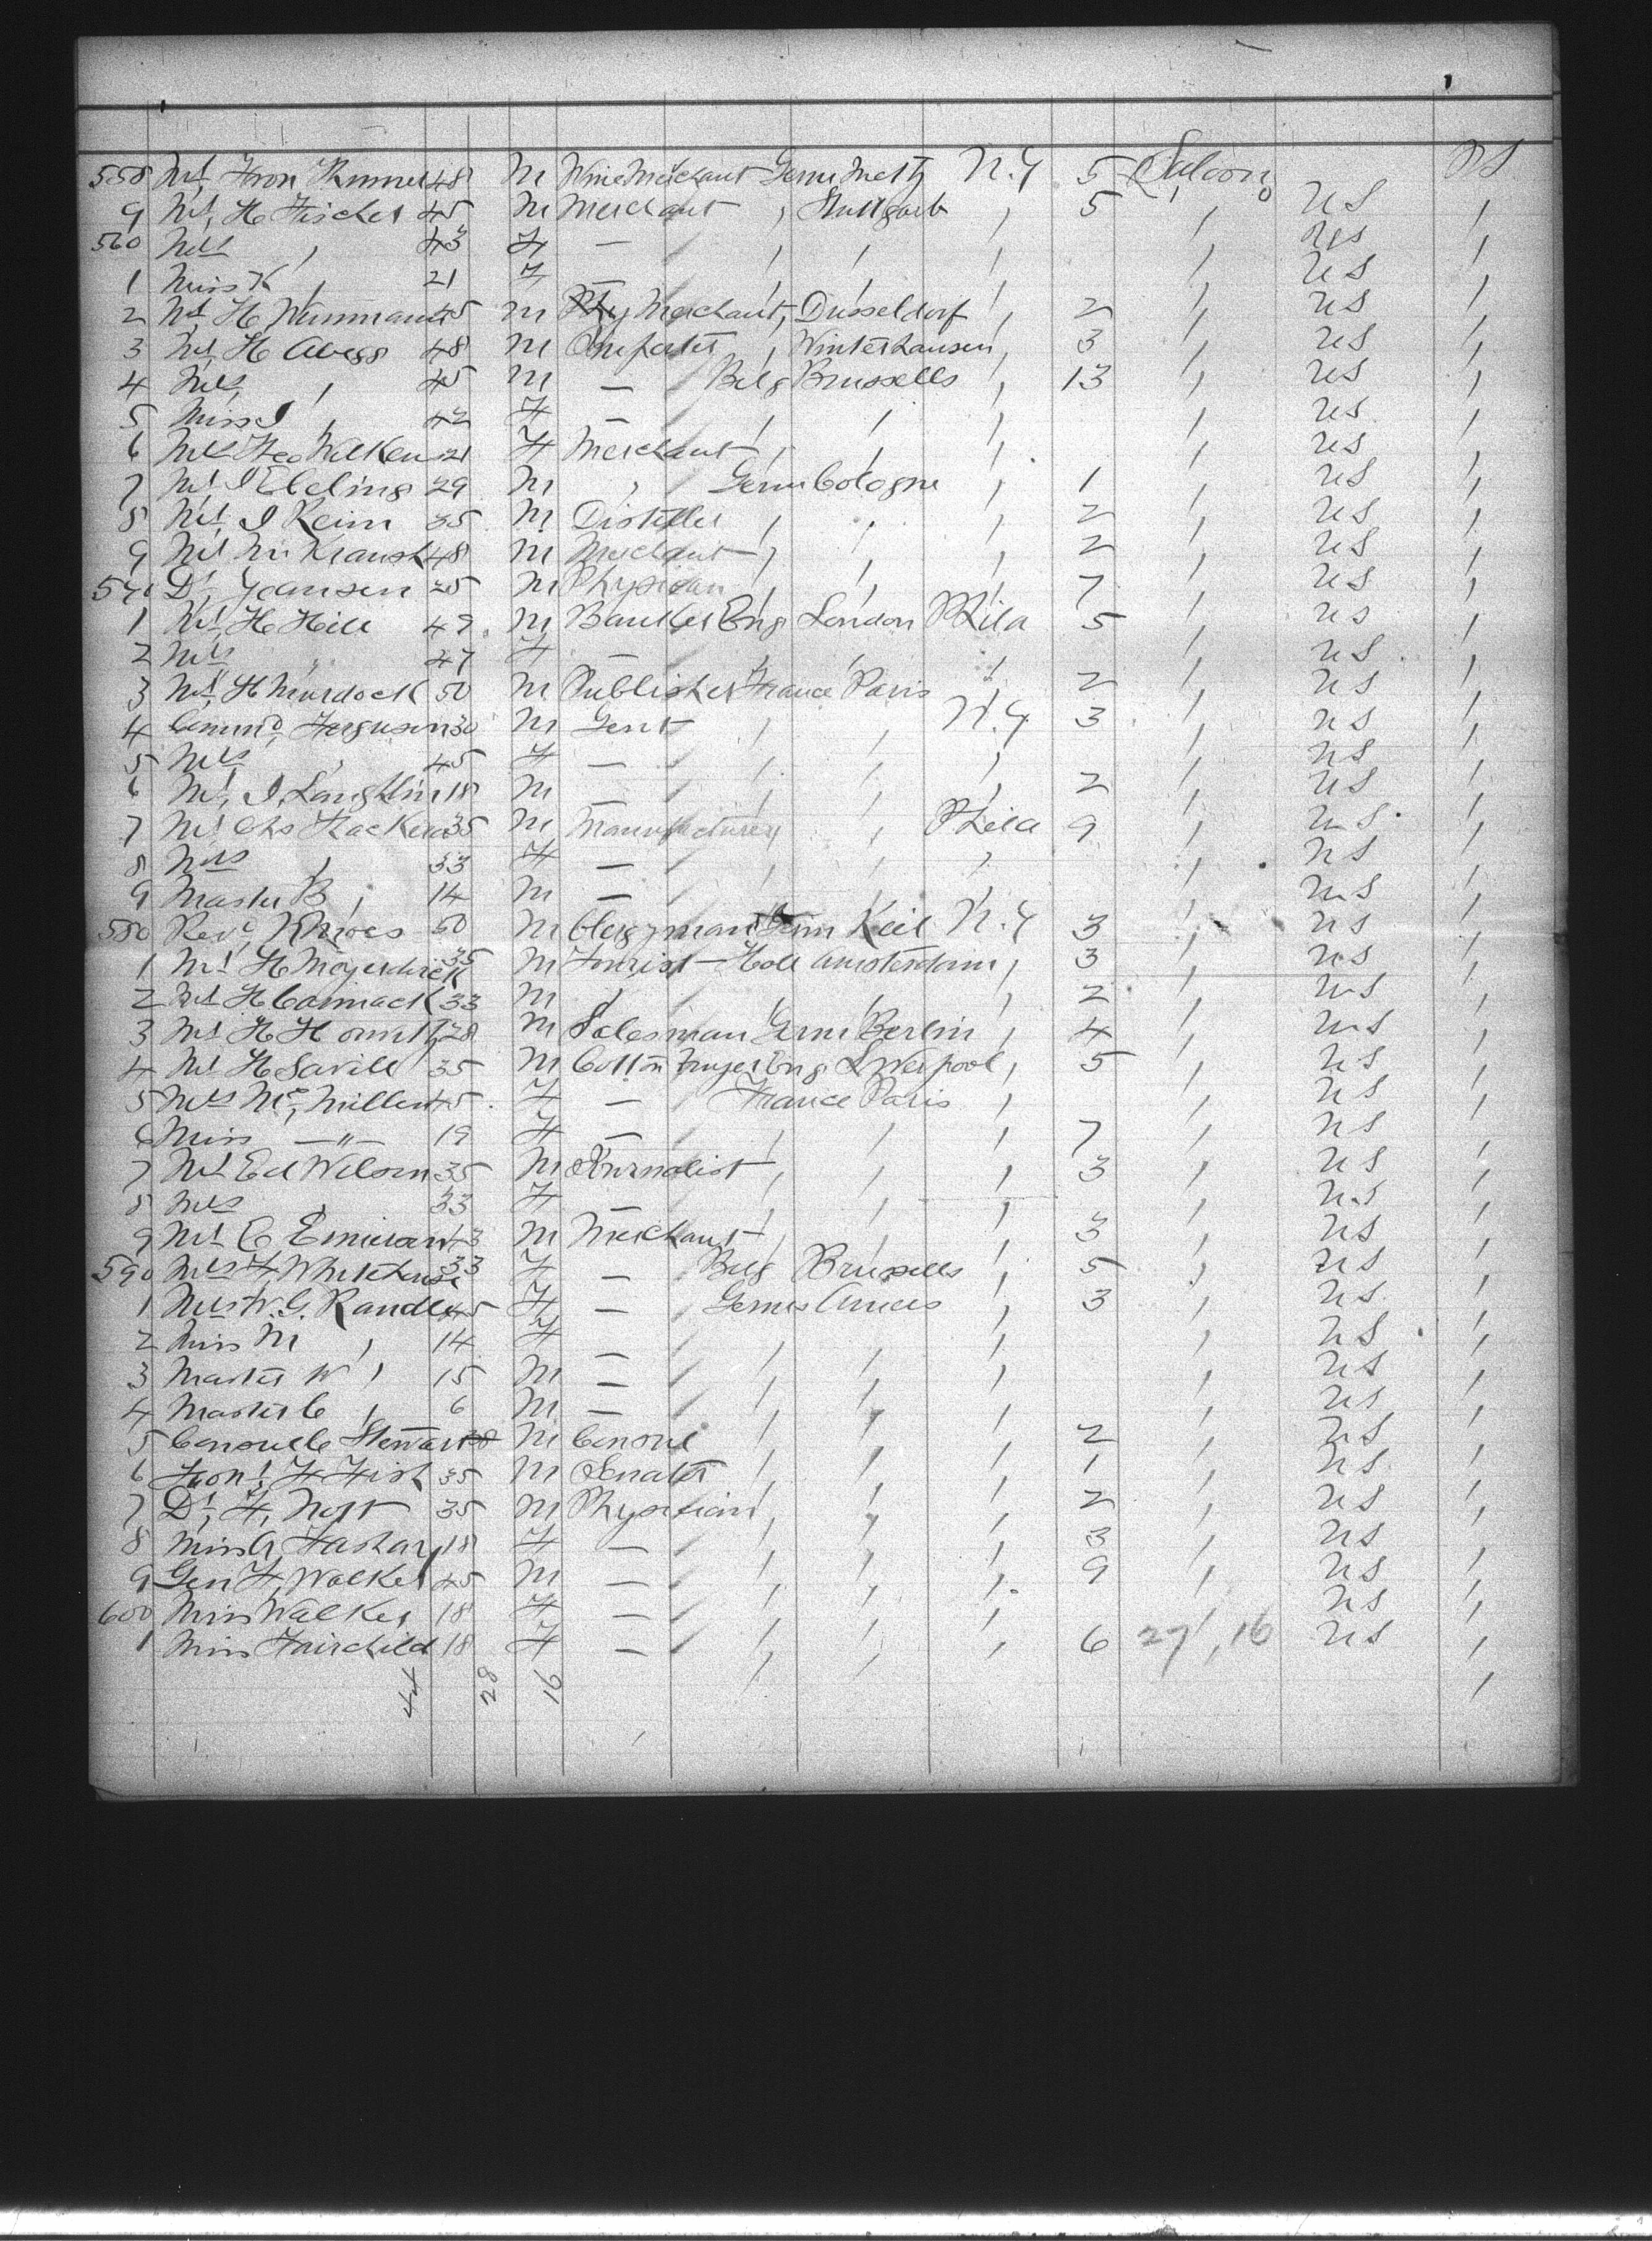 558 Mr 48 M Wine Merchant Germ Metz N.Y 5 Saloon U S
9 Mr H Fischer 45 M Merchant , Stuttgart , 5 , U S ,
560 Mrs , 43 F — , , , , U S ,
1 Miss K , 21 F — , , , , U S ,
2 Mr H 45 M Merchant , Dusseldorf , 2 , U S ,
3 Mr H Abegg 48 M Importer , Winterhausen , 3 , U S ,
4 Mrs , 45 M — Belg Brussells , 13 , U S ,
5 Miss J , 42 F — , , , , U S ,
6 Mr Geo Walken 21 F Merchant , , , , U S ,
7 Mr J Ebeling 29 M , Germ Cologne , 1 , U S ,
8 Mr J Keim 35 M Distiller , , , 2 , U S ,
9 Mr 48 M Merchant , , , 2 , U S ,
Dr 25 M Physician , , , 7 , U S ,
1 Mr H Hill 49 M Banker Eng London Phila 5 , U S ,
2 Mrs " 47 F — , , , , U S ,
3 Mr H Murdock 50 M Publisher France Paris , 2 , U S ,
4 Ferguson 30 M Gent , , N.Y 3 , U S ,
5 Mrs , 45 F — , , , , U S ,
6 Mr J. Laughlin 18 M — , , , 2 , U S ,
7 Mr Chs Thackera 35 M Manufacturer , , Phila 9 , U S ,
8 Mrs , 33 F — , , , , U S ,
9 Master B , 14 M — , , , , U S ,
580 Revd 50 M Clergyman Germ Keil N.Y 3 , U S ,
1 Mr H 35 M Tourist Holl Amsterdam , 3 , U S ,
2 Mr H Cormack 33 M , , , , 2 , U S ,
3 Mr H 28 M Salesman Germ Berlin , 4 , U S ,
4 Mr H Savill 35 M Cotton Buyer Eng Liverpool , 5 , U S ,
5 Mrs Mc, Millen 45 F — France Paris , , U S ,
6 Miss —"— 19 F — , , , 7 , U S ,
7 Mr Ed Wilson 35 M Journalist , , , 3 , U S ,
8 Mrs , 33 F — , , , , U S ,
9 Mr C 43 M Merchant , , , 3 , U S ,
590 Mrs F Whitehouse 33 F — Belg Brussells , 5 , U S ,
1 Mrs W. G. Randle 45 F — , 3 , U S ,
2 Miss M , 14 F — , , , , U S ,
3 Master W , 15 M — , , , , U S ,
4 Master C , 6 M — , , , , U S ,
5 Stewart M , , , 2 , U S ,
6 Honl, F Fish 35 M Senator , , , 1 , U S ,
7 Dr, F, Nott 35 M Physician , , , 2 , U S ,
8 Miss A 18 F — , , , 3 , U S ,
9 Gen F, Walker 45 M — , , , 9 , U S ,
600 Miss Walker 18 F — , , , , U S ,
1 Miss Fairchild 18 F — , , , 6 27 , 16 U S ,
44 28 16